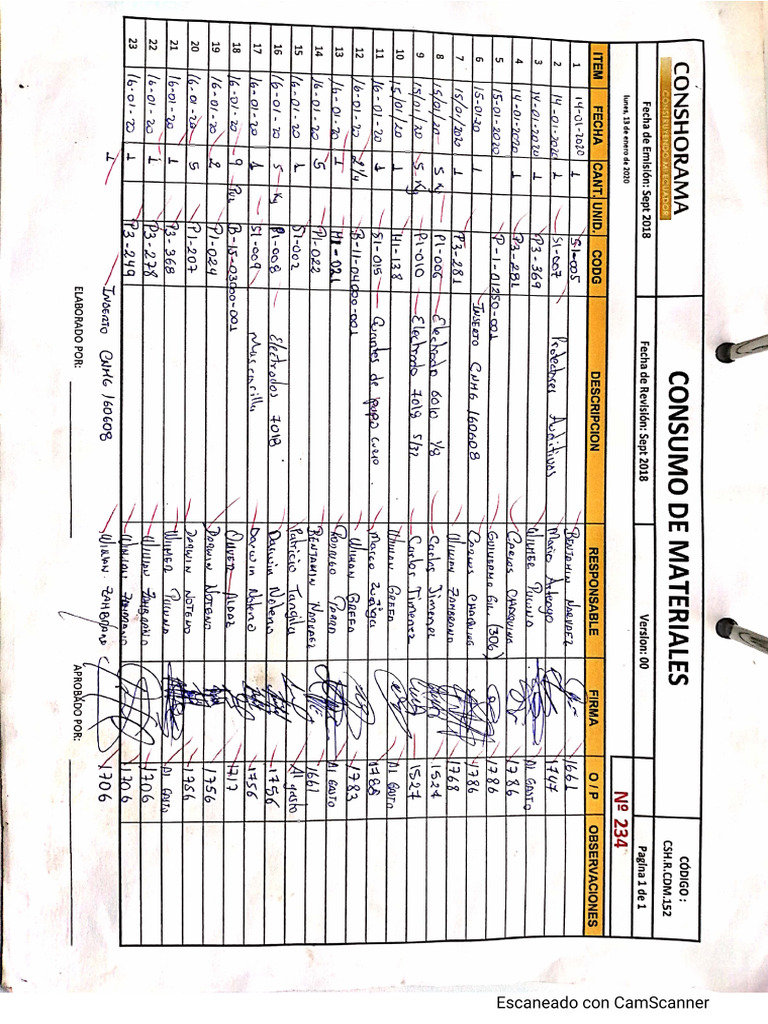 CONSHORAMA
CONSTRUYENDO MI ECUADOR
CONSUMO DE MATERIALES
CÓDIGO :
CSH.R.CDM.152
Fecha de Emisión: Sept 2018
Fecha de Revisión: Sept 2018
Version: 00
Pagina 1 de 1
lunes, 13 de enero de 2020
Nº 234
ITEM FECHA CANT. UNID. CODG DESCRIPCION RESPONSABLE FIRMA O / P OBSERVACIONES
1 14-01-2020 1 S1-005 BENJAMIN NARVAEZ 1661
2 14-01-2020 1 S1-007 Protectores Auditivos Mario 1747
3 14-01-2020 1 P3-369 WILMER Al GASTO
4 14-01-2020 1 P3-281 CARLOS 1786
5 15-01-2020 P-1-01250-001 GUILLERMO GIL (306) 1786
6 15-01-20 1 INSERTO CNMG 160608 CARLOS 1786
7 15/01/2020 1 P3-281 WILIAN ZAMBRANO 1768
8 15/01/20 5 Kg P1-006 Electrodo 6010 1/8 Carlos Jimenez 1527
9 15/01/20 5-Kg P1-010 Electrodo 7018 5/32 Carlos Jimenez 1527
10 15/01/20 1 H1-138 WILIAN Al GASTO
11 16-01-20 1 S1-015 Guantes de Marco 1788
12 16-01-20 2 1/4 B-11-04000-001 WILIAN 1783
13 16-01-20 1 H1-021 RODRIGO Al GASTO
14 16-01-20 5 P1-022 BENJAMIN NARVAEZ 1661
15 16-01-20 1 S1-002 Patricio Al gasto
16 16-01-20 5 Kg P1-008 Electrodos 7018 Darwin Noteno 1756
17 16-01-20 1 S1-009 Mascarilla Darwin Noteno 1756
18 16-01-20 9 B-15-03000-001 1717
19 16-01-20 2 P1-024 DARWIN NOTENO 1756
20 16-01-20 5 P1-207 DARWIN NOTENO 1756
21 16-01-20 1 P3-368 WILMER Al GASTO
22 16-01-20 1 P3-278 WILIAN ZAMBRANO 1706
23 16-01-20 1 P3-249 WILIAN ZAMBRANO 1706
1 INSERTO CNMG 160608 WILIAN ZAMBRANO 1706
ELABORADO POR:
APROBADO POR:
Escaneado con CamScanner